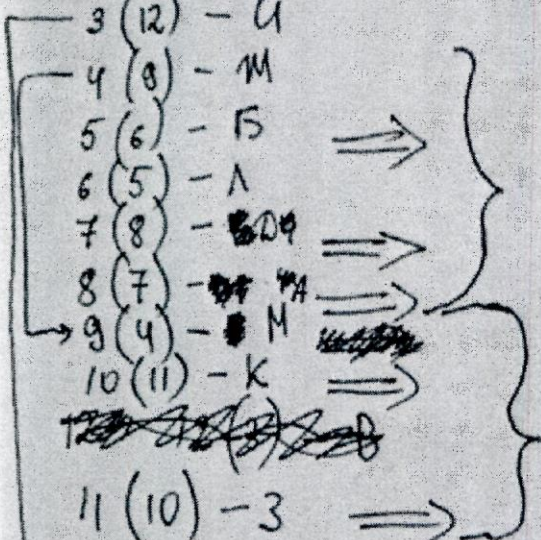 3 (12) - И
4 (9) - М
5 (6) - Б
6 (5) - Л
7 (8) -
8 (7) - А
9 (4) - М
10 (11) - К
11 (10) - З